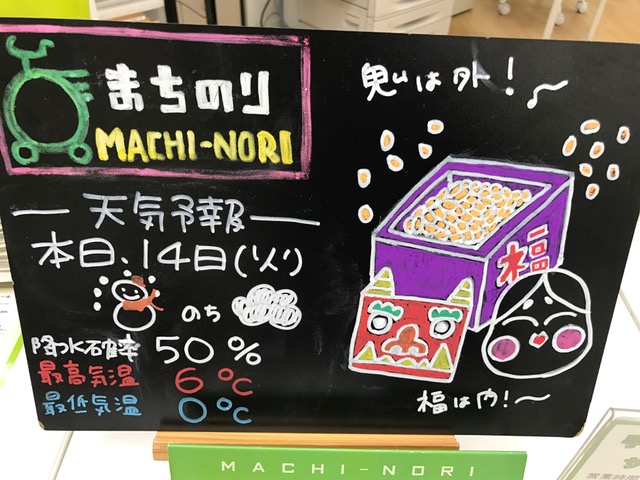 まちのり
MACHI-NORI
天気予報
本日、14日(火)
のち
降水確率 50%
最高気温 6℃
最低気温 0℃
鬼は外!〜
福
福は内!〜
MACHI-NORI
営業時間